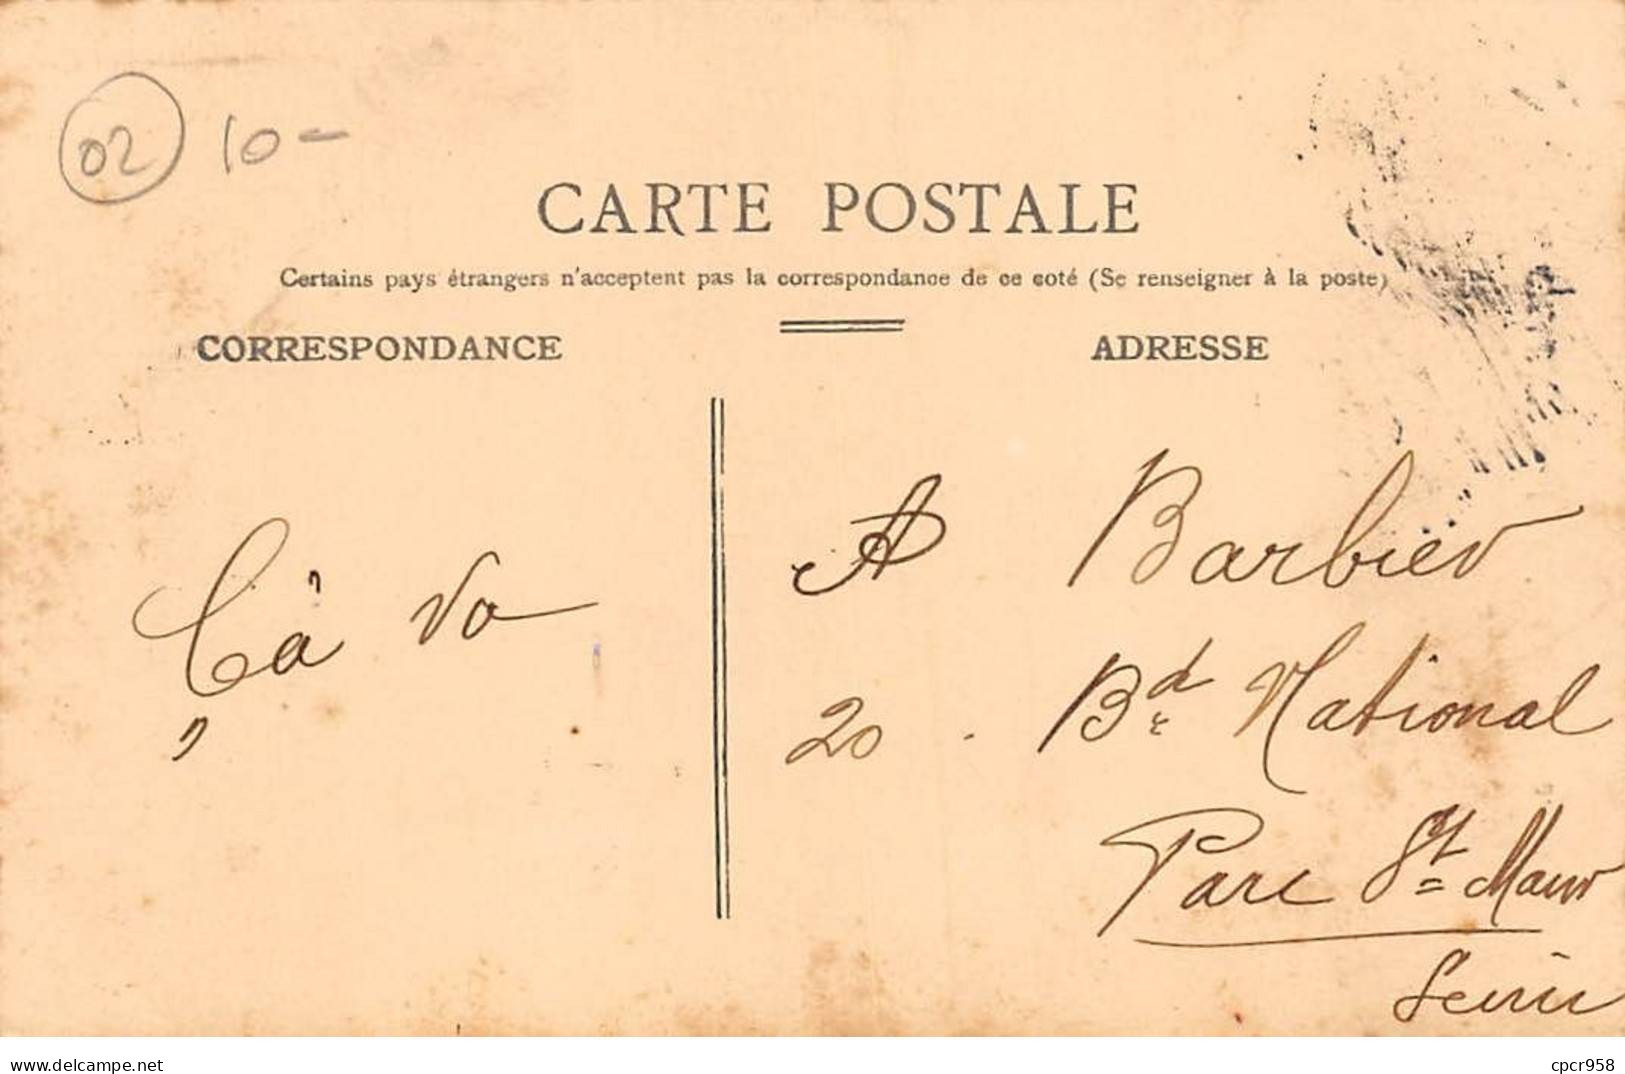 02 10 -
CARTE POSTALE
Certains pays étrangers n'acceptent pas la correspondance de ce coté (Se renseigner à la poste)
CORRESPONDANCE
ADRESSE
Çà va
A Barbier
20. Bd National
Parc St Maur
Seine
www.delcampe.net
cpcr958